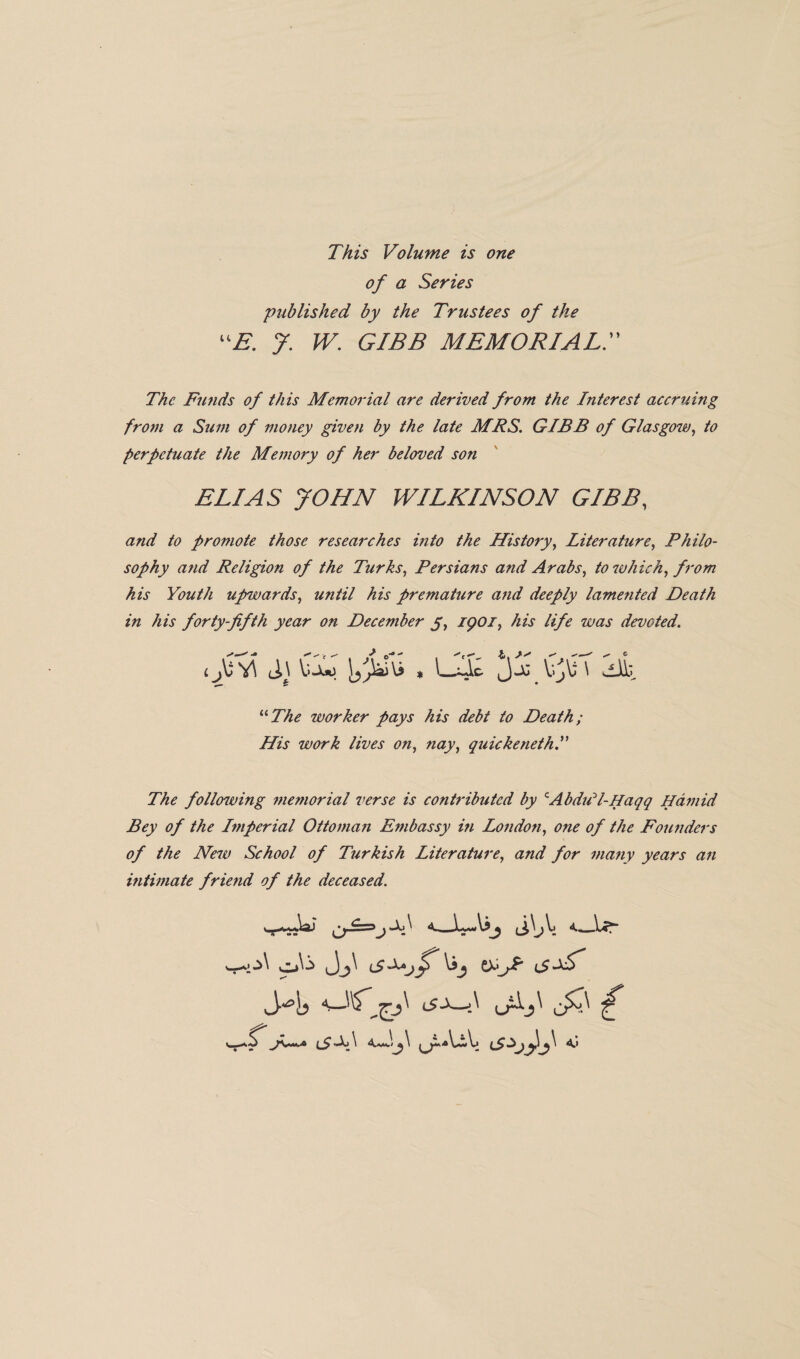 This Volume is one
of a Series
published by the Trustees of the
"E. J. W. GIBB MEMORIAL."
The Funds of this Memorial are derived from the Interest accruing
from a Sum of money given by the late MRS. GIBB of Glasgow, to
perpetuate the Memory of her beloved son
ELIAS JOHN WILKINSON GIBB,
and to promote those researches into the History, Literature, Philo-
sophy and Religion of the Turks, Persians and Arabs, to which, from
his Youth upwards, until his premature and deeply lamented Death
in his forty-fifth year on December 5, 1901, his life was devoted.
تِلْكَ آثَارُنَا تَدُلُّ عَلَيْنَا * فَانْظُرُوا بَعْدَنَا إِلَى الآثَارِ
"The worker pays his debt to Death;
His work lives on, nay, quickeneth."
The following memorial verse is contributed by ʿAbdu'l-Ḥaqq Ḥámid
Bey of the Imperial Ottoman Embassy in London, one of the Founders
of the New School of Turkish Literature, and for many years an
intimate friend of the deceased.
جمله يارانى وفاسيله ايدركن تطييب
كندى عمرنده وفا گورمدى اول ذات اديب
گنج ايكن اولمش ايدى اوج كماله واصل
نه اولوردى ياشامش اولسه ايدى مستر گيب